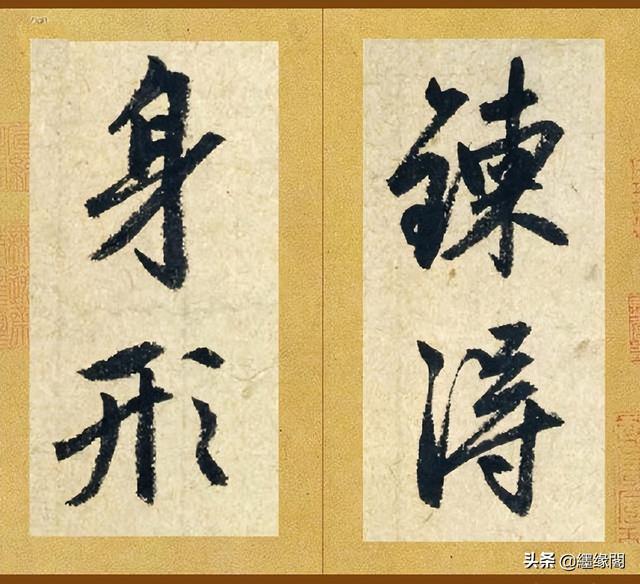 鍊得
身形
头条 @纆缘阁